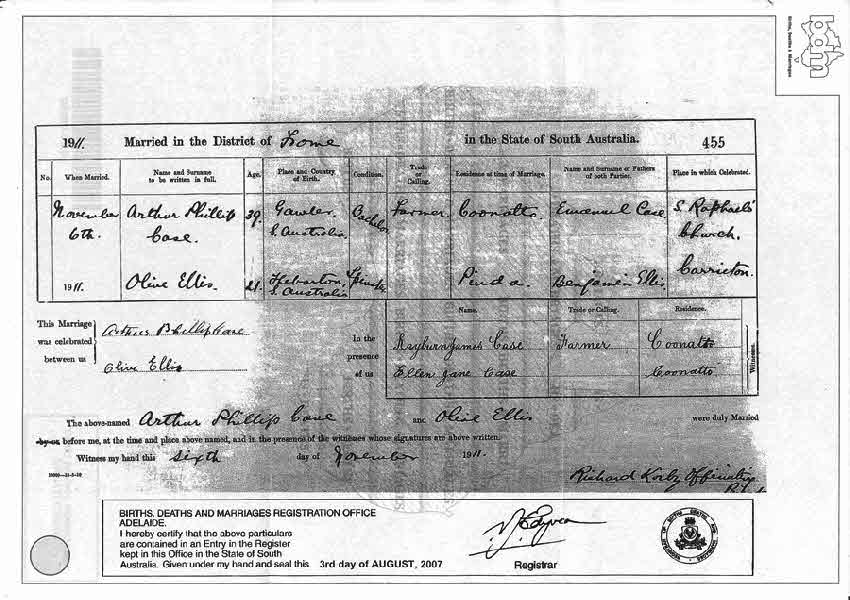 bdm
Births, Deaths & Marriages
1911. Married in the District of Frome in the State of South Australia. 455
No. When Married. Name and Surname to be written in full. Age. Place and Country of Birth. Condition. Trade or Calling. Residence at time of Marriage. Name and Surname of Fathers of both Parties. Place in which Celebrated.
November Arthur Phillip 39. Gawler Bachelor Farmer Coonatto Emanuel Case S. Raphaels
6th. Case. S. Australia. Church.
Carrieton.
1911. Olive Ellis. 21. S. Australia Spinster Pinda. Benjamin Ellis
Name. Trade or Calling. Residence.
This Marriage was celebrated between us
Arthur Phillip Case
Olive Ellis
In the presence of us
James Case Farmer Coonatto
Ellen Jane Case Coonatto
Witnesses.
The above-named Arthur Phillip Case and Olive Ellis were duly Married
by or before me, at the time and place above named, and in the presence of the witnesses whose signatures are above written.
Witness my hand this sixth day of November 1911.
Richard Officiating
BIRTHS, DEATHS AND MARRIAGES REGISTRATION OFFICE
ADELAIDE.
I hereby certify that the above particulars
are contained in an Entry in the Register
kept in this Office in the State of South
Australia. Given under my hand and seal this 3rd day of AUGUST, 2007
Registrar